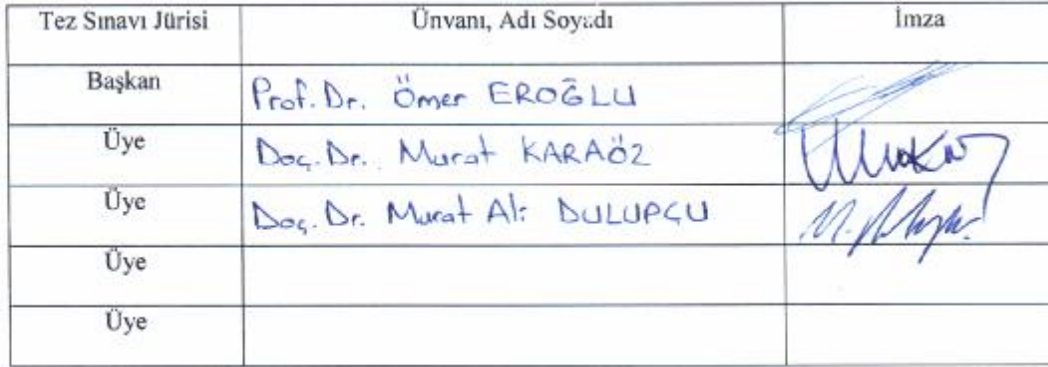 Tez Sınavı Jürisi Ünvanı, Adı Soyadı İmza
Başkan Prof. Dr. Ömer EROĞLU
Üye Doç. Dr. Murat KARAÖZ
Üye Doç. Dr. Murat Ali DULUPÇU
Üye
Üye